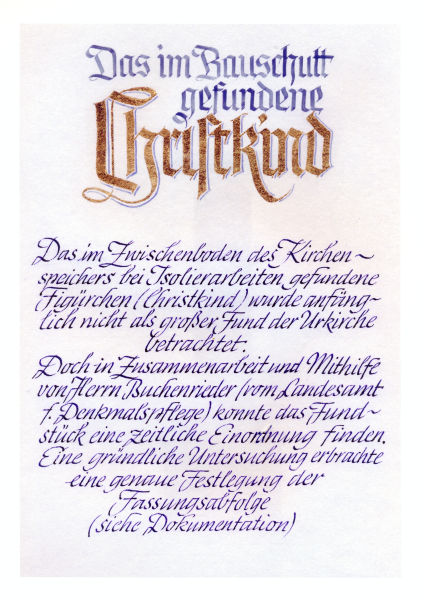 Das im Bauschutt
gefundene
Christkind
Das im Zwischenboden des Kirchen~
speichers bei Isolierarbeiten gefundene
Figürchen (Christkind) wurde anfüng~
lich nicht als großer Fund der Urkirche
betrachtet.
Doch in Zusammenarbeit und Mithilfe
von Herrn Buchenrieder (vom Landesamt
f. Denkmalspflege) konnte das Fund~
stück eine zeitliche Einordnung finden.
Eine gründliche Untersuchung erbrachte
eine genaue Festlegung der
Fassungsabfolge
(siehe Dokumentation)